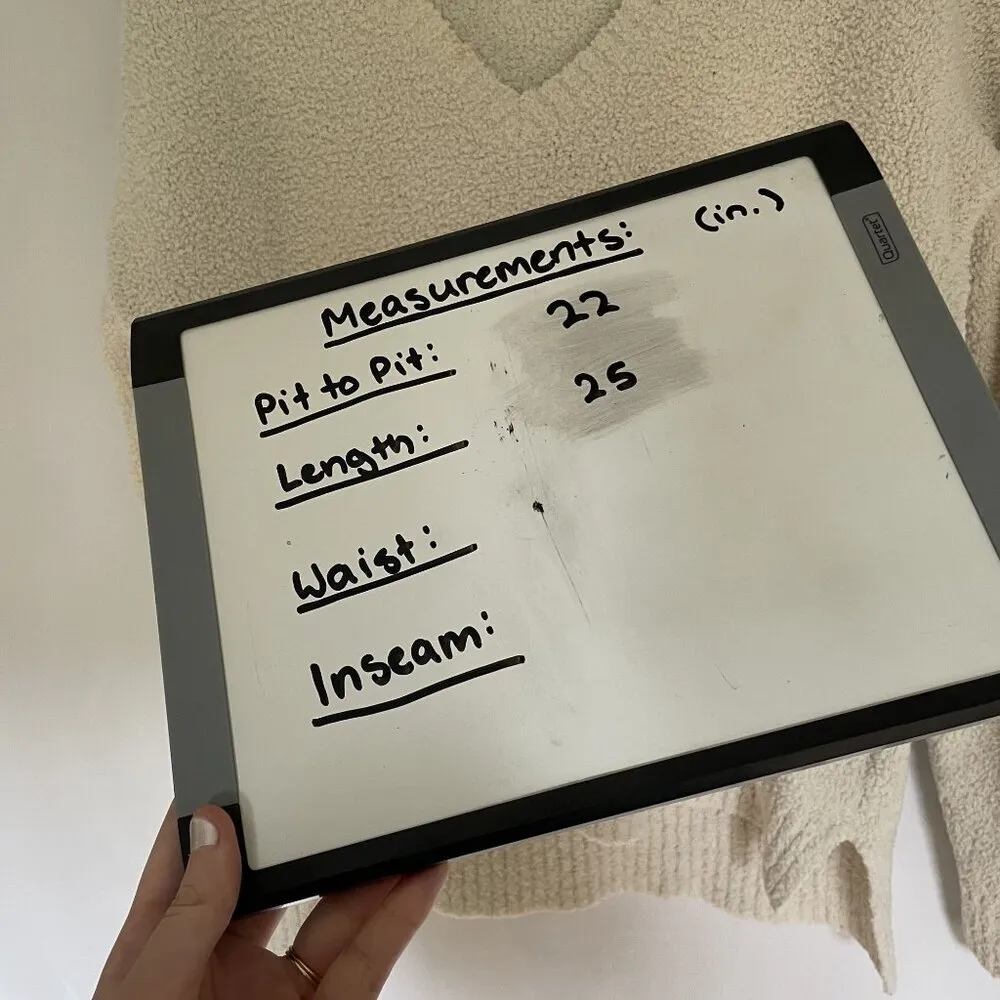 Measurements: (in.)
Pit to Pit: 22
Length: 25
Waist:
Inseam:
Quartet